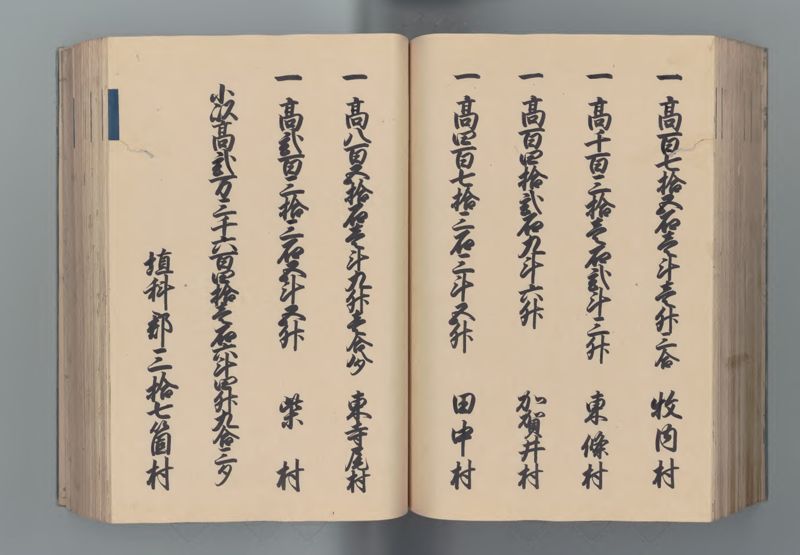 一 髙百七拾五石壱斗壱升三合 牧内村
一 髙千百三拾壱石弐斗三升 東條村
一 髙百四拾弐石九斗六升 加賀井村
一 髙四百七拾三石三斗五升 田中村
一 髙八百五拾石壱斗九升壱合 東寺尾村
一 髙弐百三拾三石五斗五升 柴村
小以髙弐万三千六百四拾壱石六斗四升九合三夕
埴科郡三拾七箇村